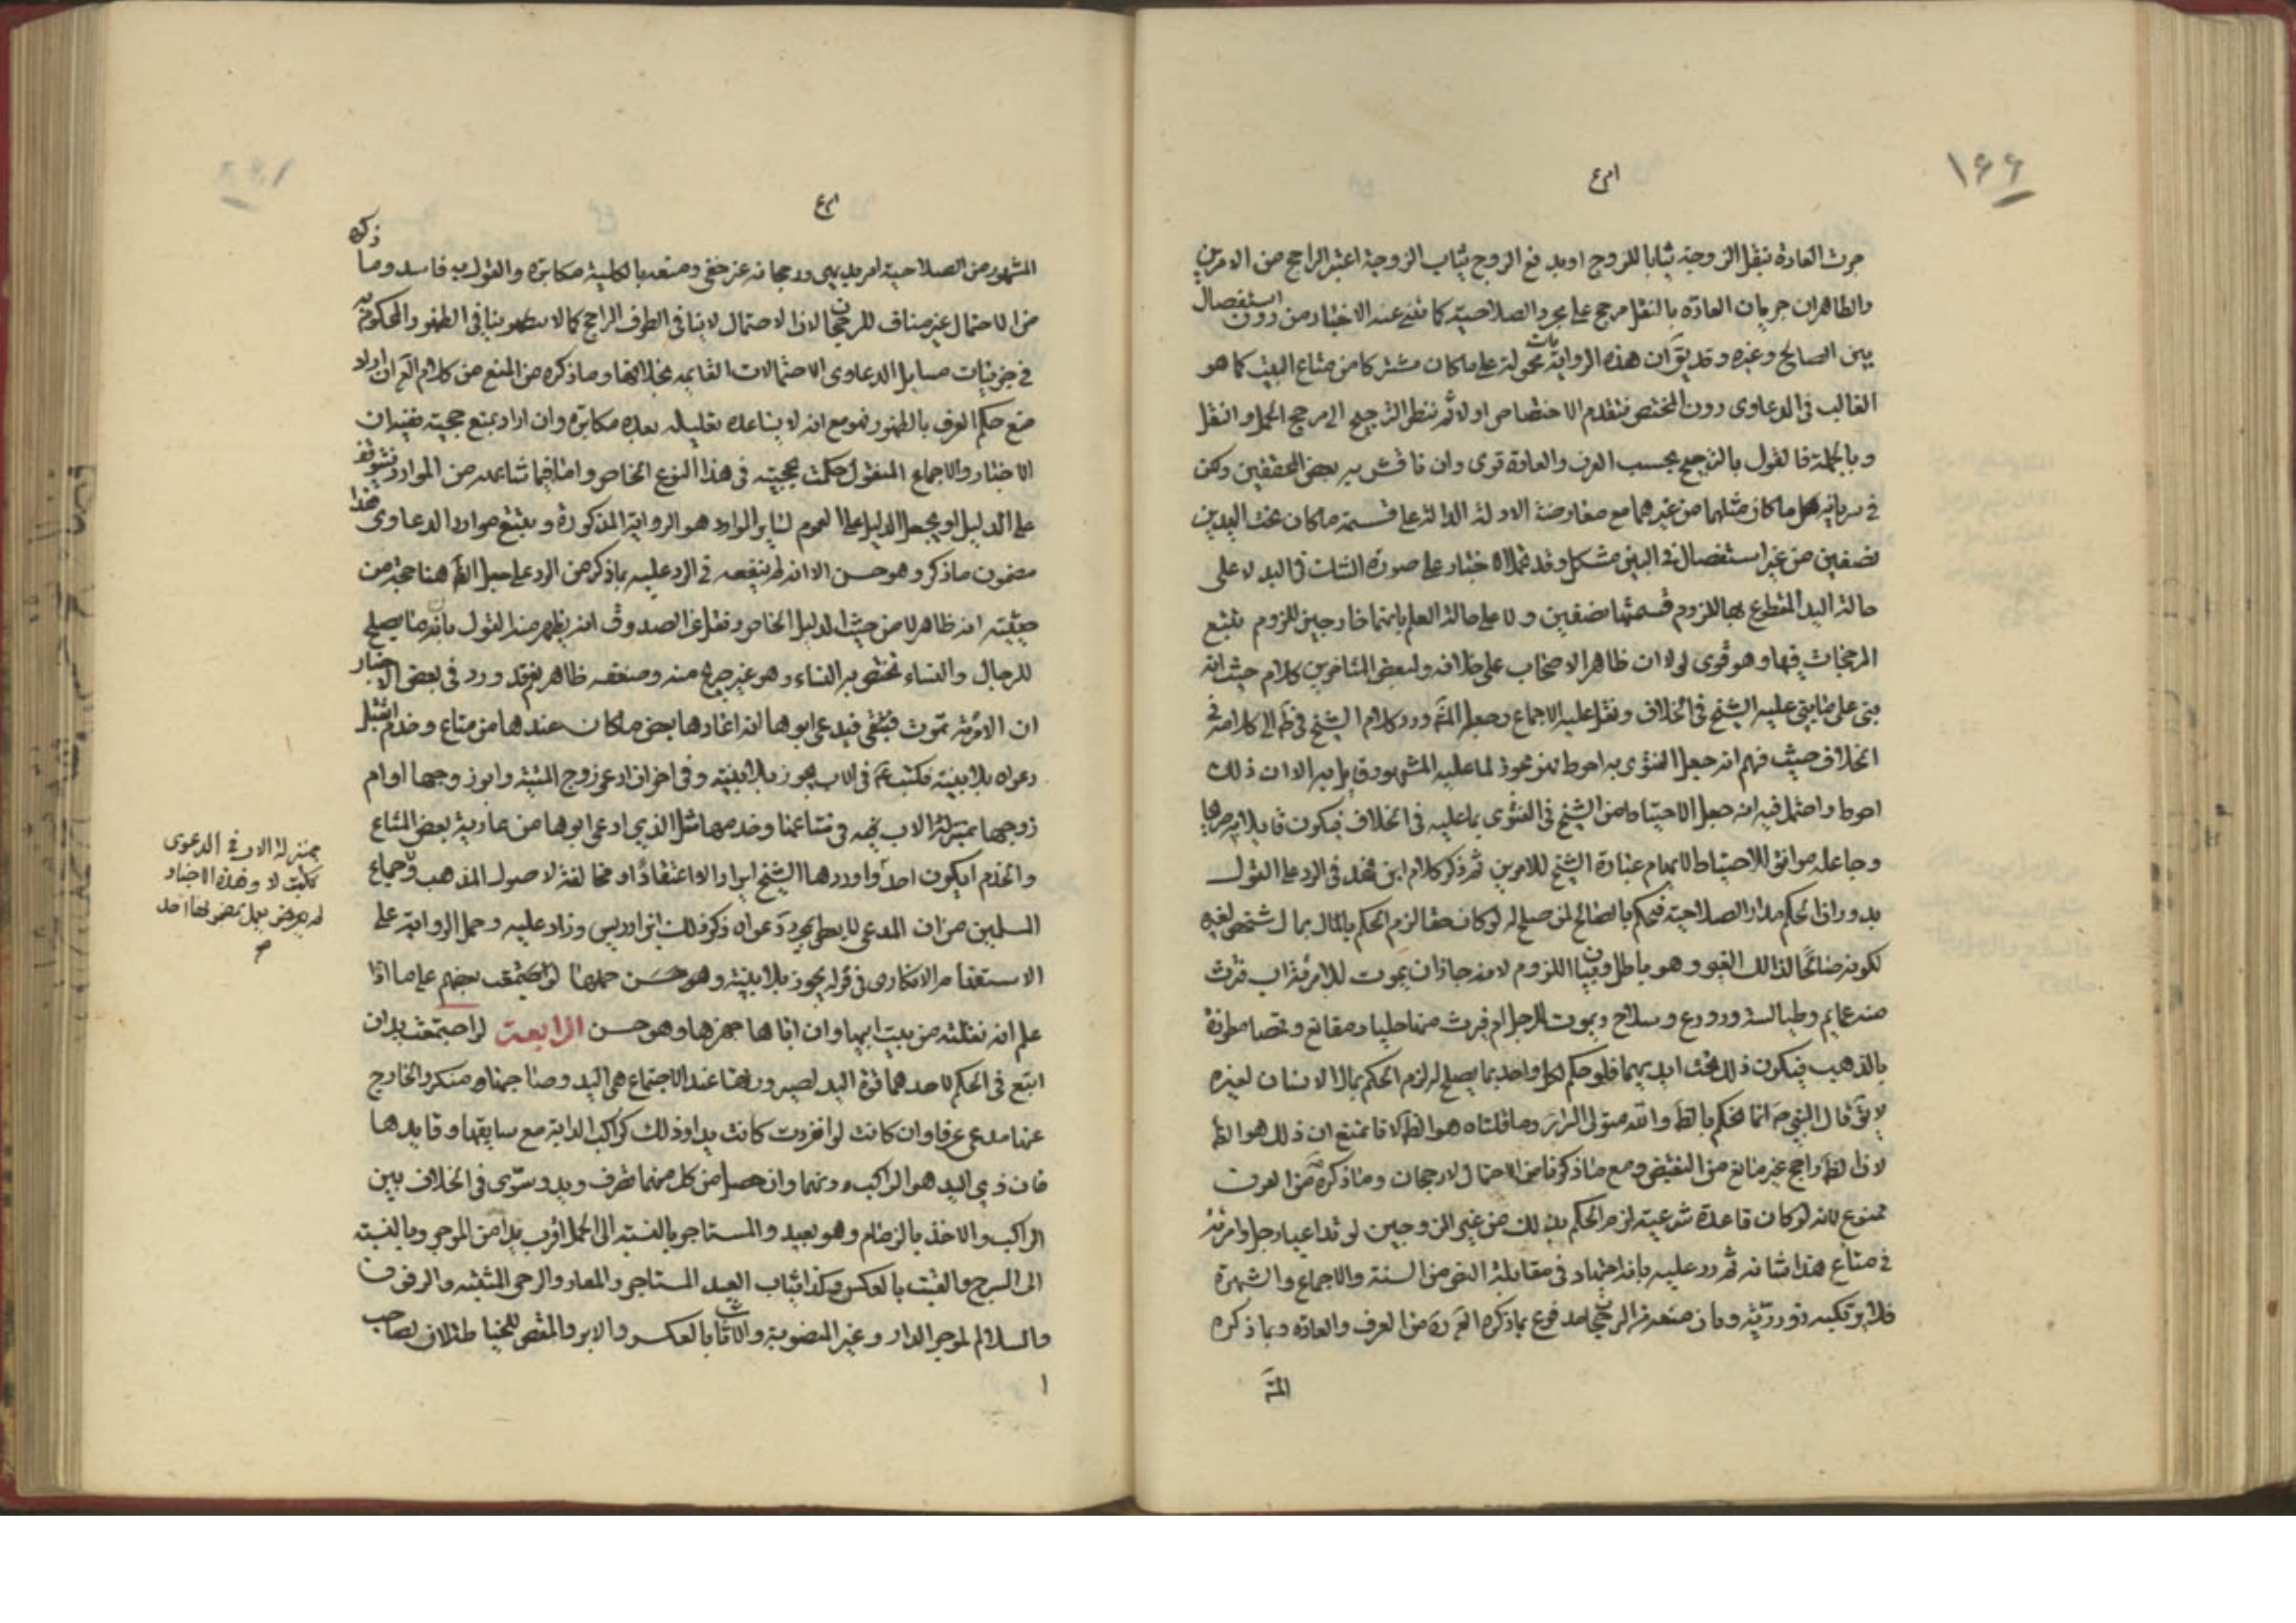 ١٦٦
جرت العادة بنقل الزوجة ثيابا للزوج او بدفع الزوج ثياب الزوجة اعتبر الراجح من الامرين
والظاهر ان جريان العادة بالنقل مرجح على مجرد الصلاحية كما تنبئ عنه الاخبار من دون استفصال
بين الصالح وغيره وقد يق ان هذه الروايات محمولة على ما كان مشتركا من متاع البيت كما هو
الغالب في الدعاوى دون المختص فتقدم الاختصاص اولا ثم ننظر الترجيح الى مرجح الحمل والنقل
وبالجملة فالقول بالترجيح بحسب العرف والعادة قوى وان ناقش به بعض المحققين ولكن
في سريانه لكل ما كان مثلهما من غيرهما مع معارضة الادلة الدالة على قسمة ما كان تحت اليدين
نصفين من غير استفصال في البين مشكل وقد تحمل الاخبار على صورة الشك في اليد لا على
حالة اليد المقطوع بها للزوم قسمتها نصفين ولا على حالة العلم بانهما خارجين للزوم تتبع
المرجحات فيها وهو قوى لولا ان ظاهر الاصحاب على خلافه ولبعض المتاخرين كلام حيث انه
بنى على ما بنى عليه الشيخ في الخلاف ونقل عليه الاجماع وجعل المشهور ورد كلام الشيخ في ط الى كلامه في
الخلاف حيث فهم انه جعل الفتوى به احوط لما عليه المشهور وقايل به الا ان ذلك
احوط واحتمل فيه انه جعل الاحتياط من الشيخ في الفتوى بما عليه في الخلاف فيكون قايلا به
وجاعله موافق للاحتياط لابهام عبارة الشيخ للامرين ثم ذكر كلام ابن فهد في الرد على القول
بدوران الحكم مدار الصلاحية فيحكم بالصالح لمن صلح له لو كان حقا لزم الحكم بالمال بما لشخص لغيره
لكونه صالحا لذلك الغير وهو باطل وبيان اللزوم لانه جاز ان يموت للامرئة اب فترث
منه عمايم وطيالسة ودروع وسلاح ويموت للرجل ام فيرث منها حليا ومقانع وقصا مطرزة
بالذهب فيكون ذلك تحت ايديهما فلو حكم لكل واحد بما يصلح له لزم الحكم بمال الانسان لغيره
لا يق قال النبي ص انما نحكم بالظ والله متولى السراير وما قلناه هو الظ لانا نمنع ان ذلك هو الظ
لان الظ راجح غير مانع من النقيض ومع ما ذكرنا من الاحتمال لا رجحان وما ذكره من العرف
ممنوع لانه لو كان قاعدة شرعية لزم الحكم بذلك من غير الزوجين لو تداعيا رجل وامرئة
في متاع هذا شانه ثم رد عليه بانه اجتهاد في مقابلة النص من السنة والاجماع والشهرة
فلا يرتكبه ذو وان منعه الرجحان مدفوع بما ذكره من العرف والعادة وبما ذكره
المشهور من الصلاحية امر بديهي ورجحانه غير خفى ومنعه بالكلية مكابرة والقول به فاسد وما ذكره
من الاحتمال غير مناف للرجحان لان الاحتمال لا ينافى الطرف الراجح كما لا ينافى الظهور والمحكوم به
في جزئيات مسايل الدعاوى الاحتمالات القايمة بخلافها وما ذكره من المنع من كلام ان اراد
منع حكم العرف بالظهور فهو مع انه لا يساعده تعليله بعده مكابرة وان اراد بمنع حجيته ففيه ان
الاخبار والاجماع المنقول حكمت بحجيته في هذا النوع الخاص واما فيما شاعده من الموارد فتوقف
على الدليل او يجعل الدليل على العموم لساير الموارد هو الرواية المذكورة وتتبع موارد الدعاوى هذا
مضمون ما ذكر وهو حسن الا انه لم ينفعه في الرد عليه بما ذكر من الرد على جعل الظ هنا حجة من
حقيته انه ظاهر لا من حيث الدليل الخاص ونقل عن الصدوق انه يظهر منه القول بان ما يصلح
للرجال والنساء تختص به النساء وهو غير صريح منه وضعفه ظاهر نعم قد ورد في بعض الاخبار
ان الامرئة تموت فيدعى ابوها انه اعارها بعض ما كان عندها من متاع وخدم اتقبل
دعواه بلا بينة فكتب ع في الاب يجوز بلا بينة وفي اخر ان ادعى زوج الميتة وابو زوجها او ام
زوجها بمنزلة الاب في متاعها وخدمها مثل الذي ادعى ابوها من عارية بعض المتاع
والخدم ايكون احد واوردها الشيخ ايرادا لا اعتقادا ومخالفة لاصول المذهب واجماع
المسلمين من ان المدعى لا يعطى بمجرد دعواه ذكر ذلك ابن ادريس وزاد عليه وحمل الرواية على
الاستفهام الانكارى في قوله يجوز بلا بينة وهو حسن حملها بعضهم على ما اذا
علم انه نقلته من بيت ابيها وان اباها جهزها وهو حسن الرابعة لو اجتمعت يدان
اتبع في الحكم لاحدهما قوة اليد لصيرورتها عند الاجتماع هي اليد وصاحبها منكر والخارج
عنها مدعى عرفا وان كانت لو انفردت كانت يدا وذلك كراكب الدابة مع سايقها وقايدها
فان ذي اليد هو الراكب دونهما وان حصل من كل منهما تصرف ويد وسوى في الخلاف بين
الراكب والاخذ بالزمام وهو بعيد والمستاجر بالنسبة الى الحمل اقرب يدا من الموجر وبالنسبة
الى السرج والقتب بالعكس وكذا ثياب العبد المستاجر والمعار والرحى المثبتة والرفوف
والسلالم لموجر الدار وغير المنصوبة والاثاث بالعكس والابر والمقص للخياط لصاحب
بمنزلة الاب في الدعوى
فكتب لا وهذه الاخبار